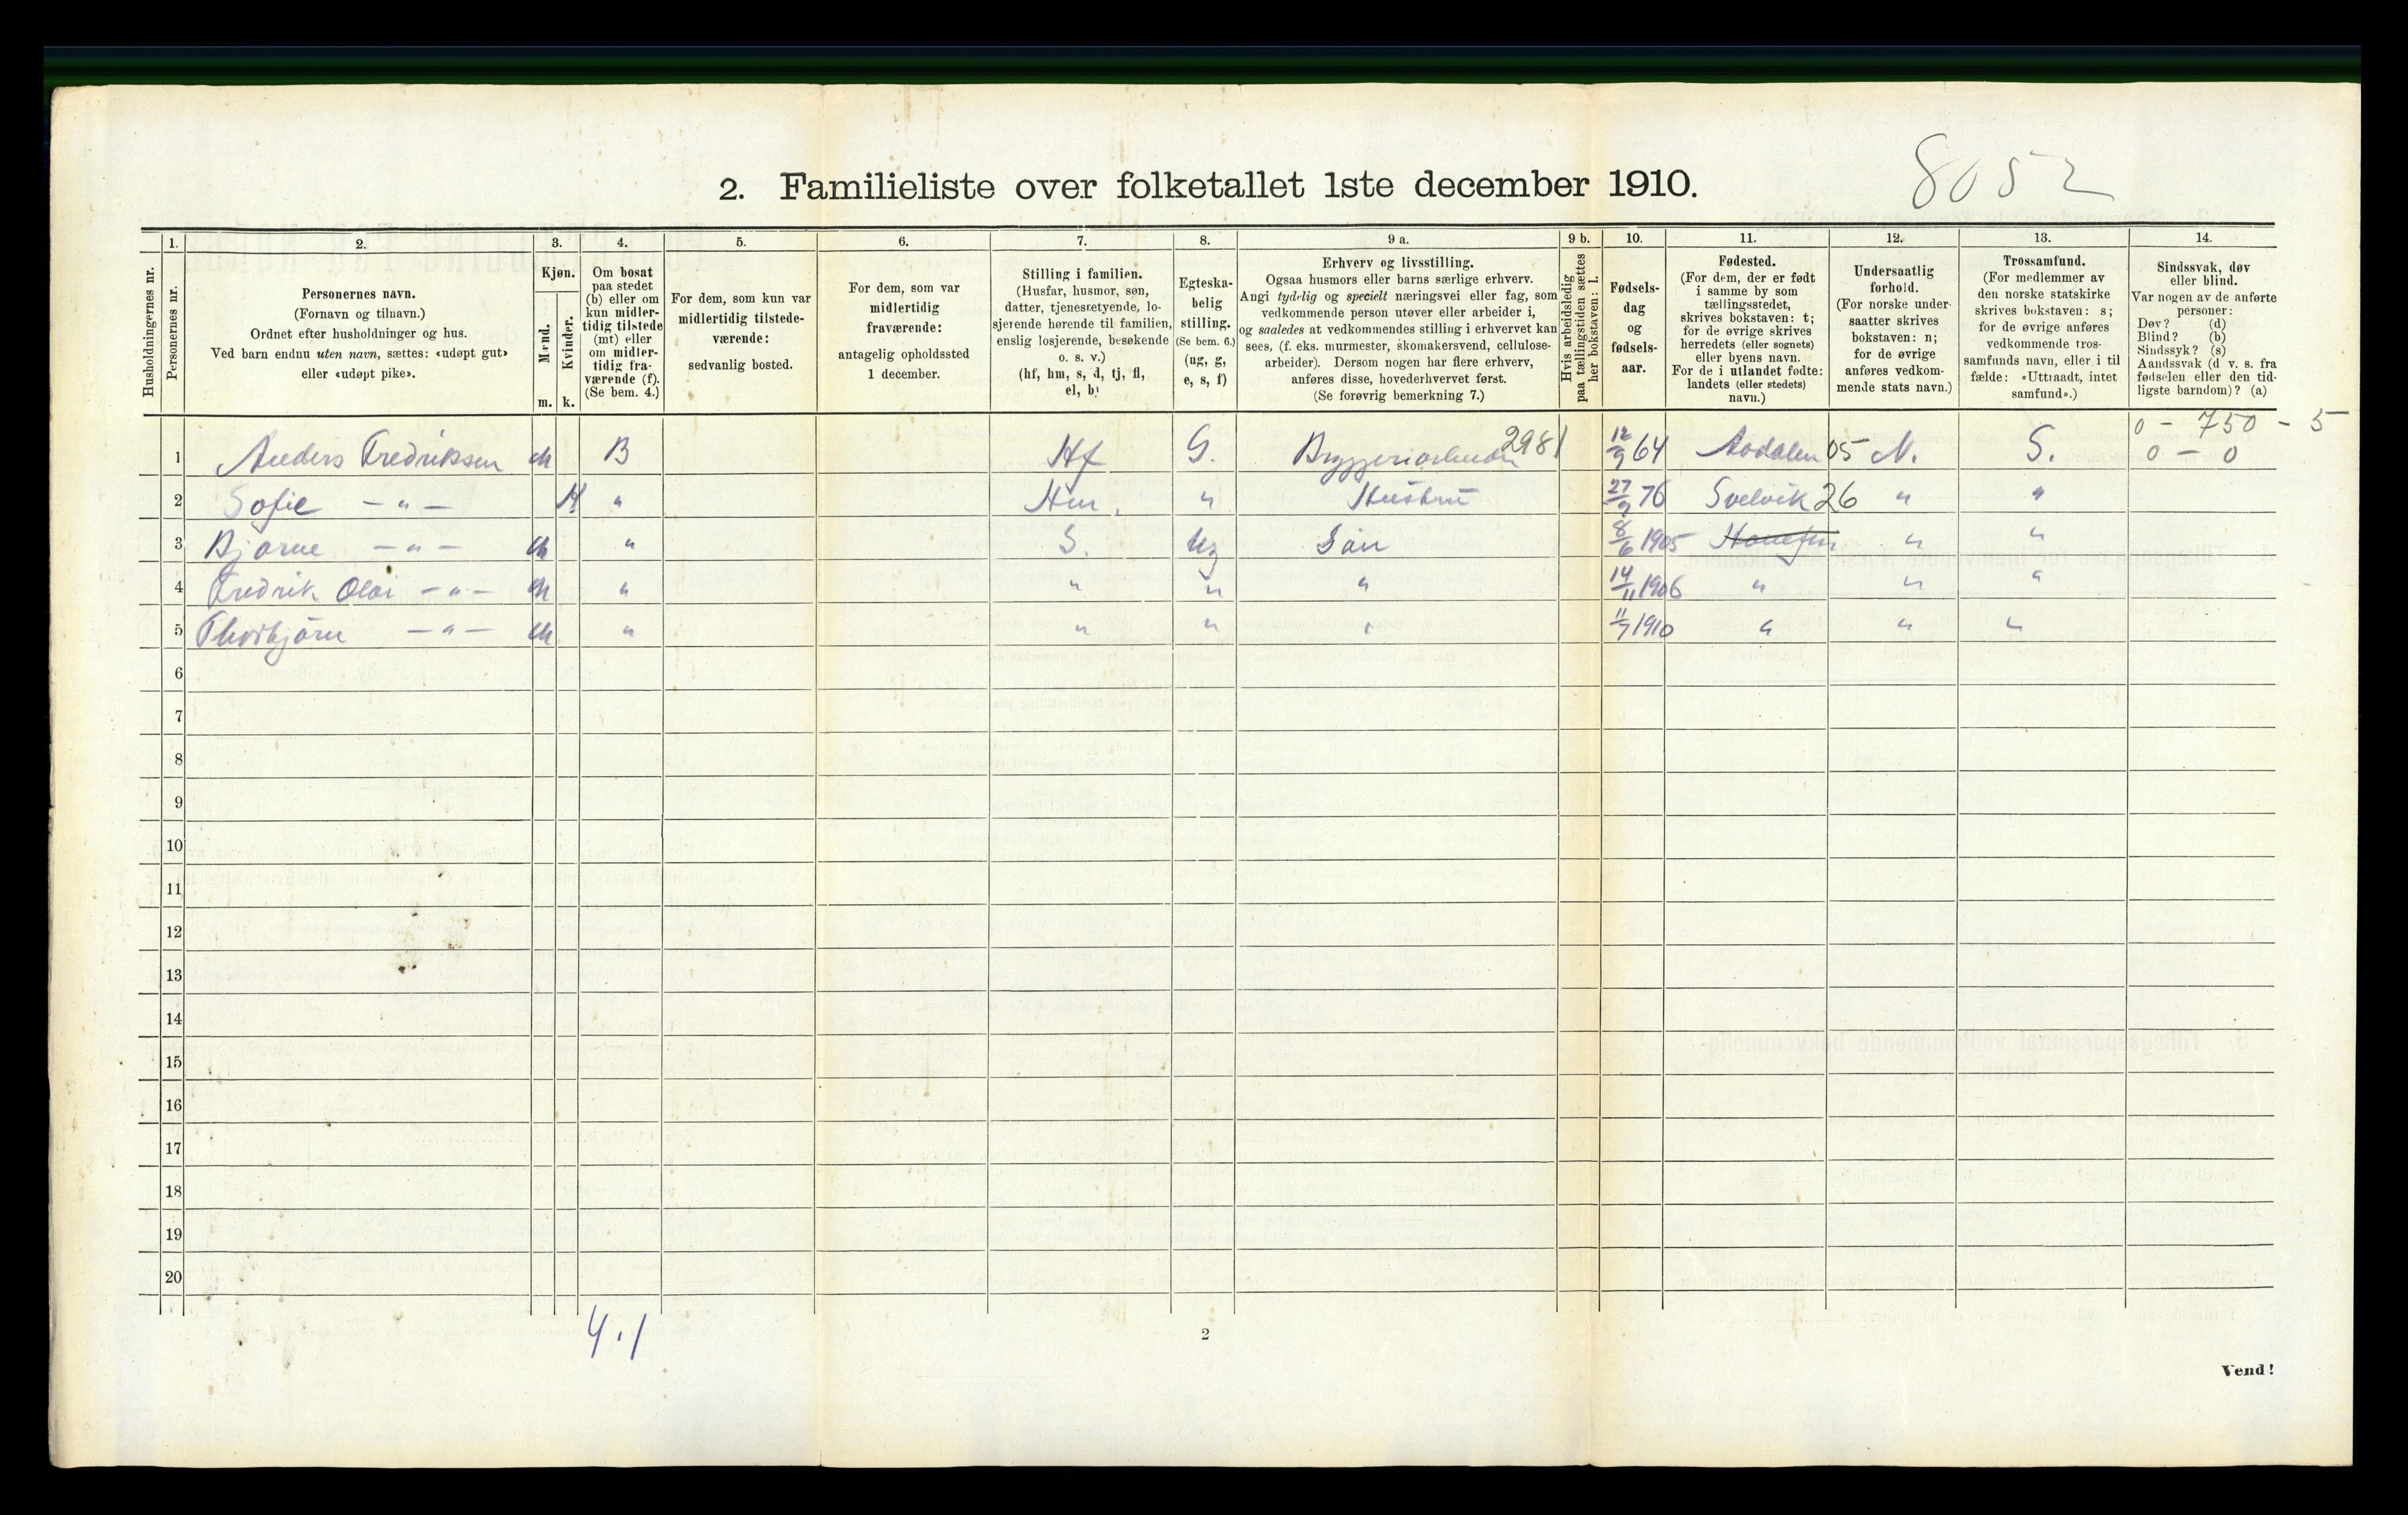 8052
2. Familieliste over folketallet 1ste december 1910.
Husholdningernes nr.
1.
Personernes nr.
2.
Personernes navn.
(Fornavn og tilnavn.)
Ordnet efter husholdninger og hus.
Ved barn endnu uten navn, sættes: «udøpt gut»
eller «udøpt pike».
3.
Kjøn.
Mænd.
Kvinder.
m. k.
4.
Om bosat
paa stedet
(b) eller om
kun midler-
tidig tilstede
(mt) eller
om midler-
tidig fra-
værende (f).
(Se bem. 4.)
5.
For dem, som kun var
midlertidig tilstede-
værende:
sedvanlig bosted.
6.
For dem, som var
midlertidig
fraværende:
antagelig opholdssted
1 december.
7.
Stilling i familien.
(Husfar, husmor, søn,
datter, tjenestetyende, lo-
sjerende hørende til familien,
enslig losjerende, besøkende
o. s. v.)
(hf, hm, s, d, tj, fl,
el, b)
8.
Egteska-
belig
stilling.
(Se bem. 6.)
(ug, g,
e, s, f)
9 a.
Erhverv og livsstilling.
Ogsaa husmors eller barns særlige erhverv.
Angi tydelig og specielt næringsvei eller fag, som
vedkommende person utøver eller arbeider i,
og saaledes at vedkommendes stilling i erhvervet kan
sees, (f. eks. murmester, skomakersvend, cellulose-
arbeider). Dersom nogen har flere erhverv,
anføres disse, hovederhvervet først.
(Se forøvrig bemerkning 7.)
9 b.
Hvis arbeidsledig
paa tællingstiden sættes
her bokstaven: l.
10.
Fødsels-
dag
og
fødsels-
aar.
11.
Fødested.
(For dem, der er født
i samme by som
tællingsstedet,
skrives bokstaven: t;
for de øvrige skrives
herredets (eller sognets)
eller byens navn.
For de i utlandet fødte:
landets (eller stedets)
navn.)
12.
Undersaatlig
forhold.
(For norske under-
saatter skrives
bokstaven: n;
for de øvrige
anføres vedkom-
mende stats navn.)
13.
Trossamfund.
(For medlemmer av
den norske statskirke
skrives bokstaven: s;
for de øvrige anføres
vedkommende tros-
samfunds navn, eller i til
fælde: «Uttraadt, intet
samfund».)
14.
Sindssvak, døv
eller blind.
Var nogen av de anførte
personer:
Døv? (d)
Blind? (b)
Sindssyk? (s)
Aandssvak (d v. s. fra
fødselen eller den tid-
ligste barndom)? (a)
0 - 750 - 5
1 Anders Fredriksen m B Hf G. Bryggeriarbeider 2981 12/9 64 Aadalen 05 N. S. 0 - 0
2 Sofie - " - K " Hm. " Hustru 27/9 76 Svelvik 26 " "
3 Bjarne - " - m " S. Ug Søn 8/6 1905 Hønefos " "
4 Fredrik Olai - " - m " " " " 14/11 1906 " " "
5 Thorbjørn - " - m " " " " 11/7 1910 " " "
6
7
8
9
10
11
12
13
14
15
16
17
18
19
20
4.1
2
Vend!